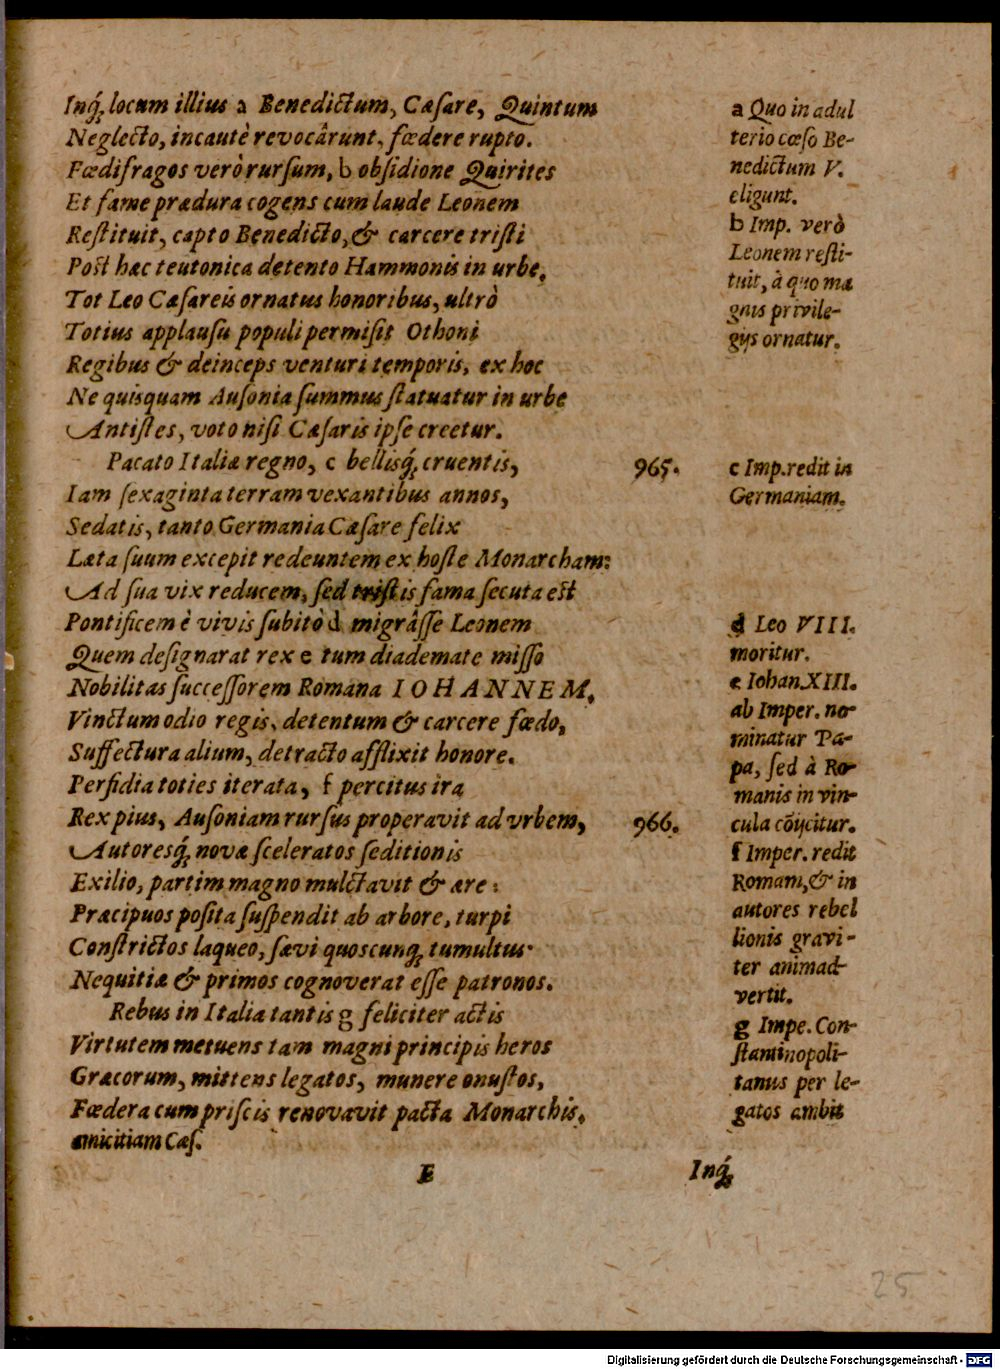 Inq́ꝫ locum illius a Benedictum, Cæſare, Quintum
Neglecto, incautè revocârunt, fœdere rupto.
Fœdifragos verò rurſum, b obſidione Quirites
Et fame prædura cogens cum laude Leonem
Reſtituit, capto Benedicto, & carcere triſti
Poſt hæc teutonica detento Hammonis in urbe.
Tot Leo Cæſareis ornatus honoribus, ultrò
Totius applauſu populi permiſit Othoni
Regibus & deinceps venturi temporis, ex hoc
Ne quisquam Auſonia ſummus ſtatuatur in urbe
Antiſtes, voto niſi Cæſaris ipſe creetur.
Pacato Italiæ regno, c bellisq́ꝫ cruentis,
Iam ſexaginta terram vexantibus annos,
Sedatis, tanto Germania Cæſare felix
Læta ſuum excepit redeuntem ex hoſte Monarcham:
Ad ſua vix reducem, ſed triſtis fama ſecuta eſt
Pontificem è vivis ſubitò d migrâſſe Leonem
Quem deſignarat rex e tum diademate miſſo
Nobilitas ſucceſſorem Romana IOHANNEM,
Vinctum odio regis, detentum & carcere fœdo,
Suffectura alium, detracto afflixit honore.
Perfidia toties iterata, f percitus ira
Rex pius, Auſoniam rurſus properavit ad vrbem,
Autoresq́ꝫ novæ ſceleratos ſeditionis
Exilio, partim magno mulctavit & ære:
Præcipuos poſita ſuſpendit ab arbore, turpi
Conſtrictos laqueo, ſævi quoscunq́ꝫ tumultus·
Nequitiæ & primos cognoverat eſſe patronos.
Rebus in Italia tantis g feliciter actis
Virtutem metuens tam magni principis heros
Græcorum, mittens legatos, munere onuſtos,
Fœdera cum priſcis renovavit pacta Monarchis,
amicitiam Cæſ.
965.
966.
a Quo in adul
terio cæſo Be-
nedictum V.
eligunt.
b Imp. verò
Leonem reſti-
tuit, à quo ma
gnis privile-
gijs ornatur.
c Imp. redit in
Germaniam.
d Leo VIII.
moritur.
e Iohan. XIII.
ab Imper. no-
minatur Pa-
pa, ſed à Ro-
manis in vin-
cula cōijcitur.
f Imper. redit
Romam, & in
autores rebel
lionis gravi-
ter animad-
vertit.
g Impe. Con-
ſtaminopoli-
tanus per le-
gatos ambit
E
Inq́ꝫ
25
Digitalisierung gefördert durch die Deutsche Forschungsgemeinschaft - DFG